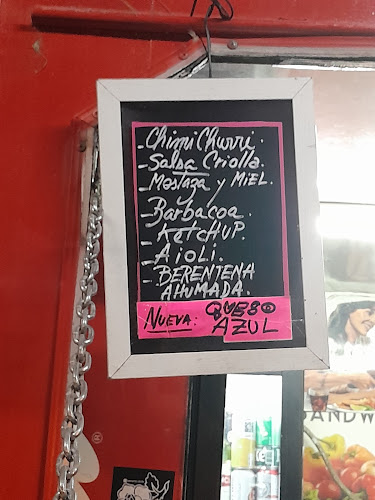 - Chimi Churri.
- Salsa Criolla.
- Mostaza y MIEL.
- Barbacoa.
- KetcHUP.
- AioLi.
- BERENTENA
AHUMADA.
NUEVA: QUESO
AZUL
ANDW